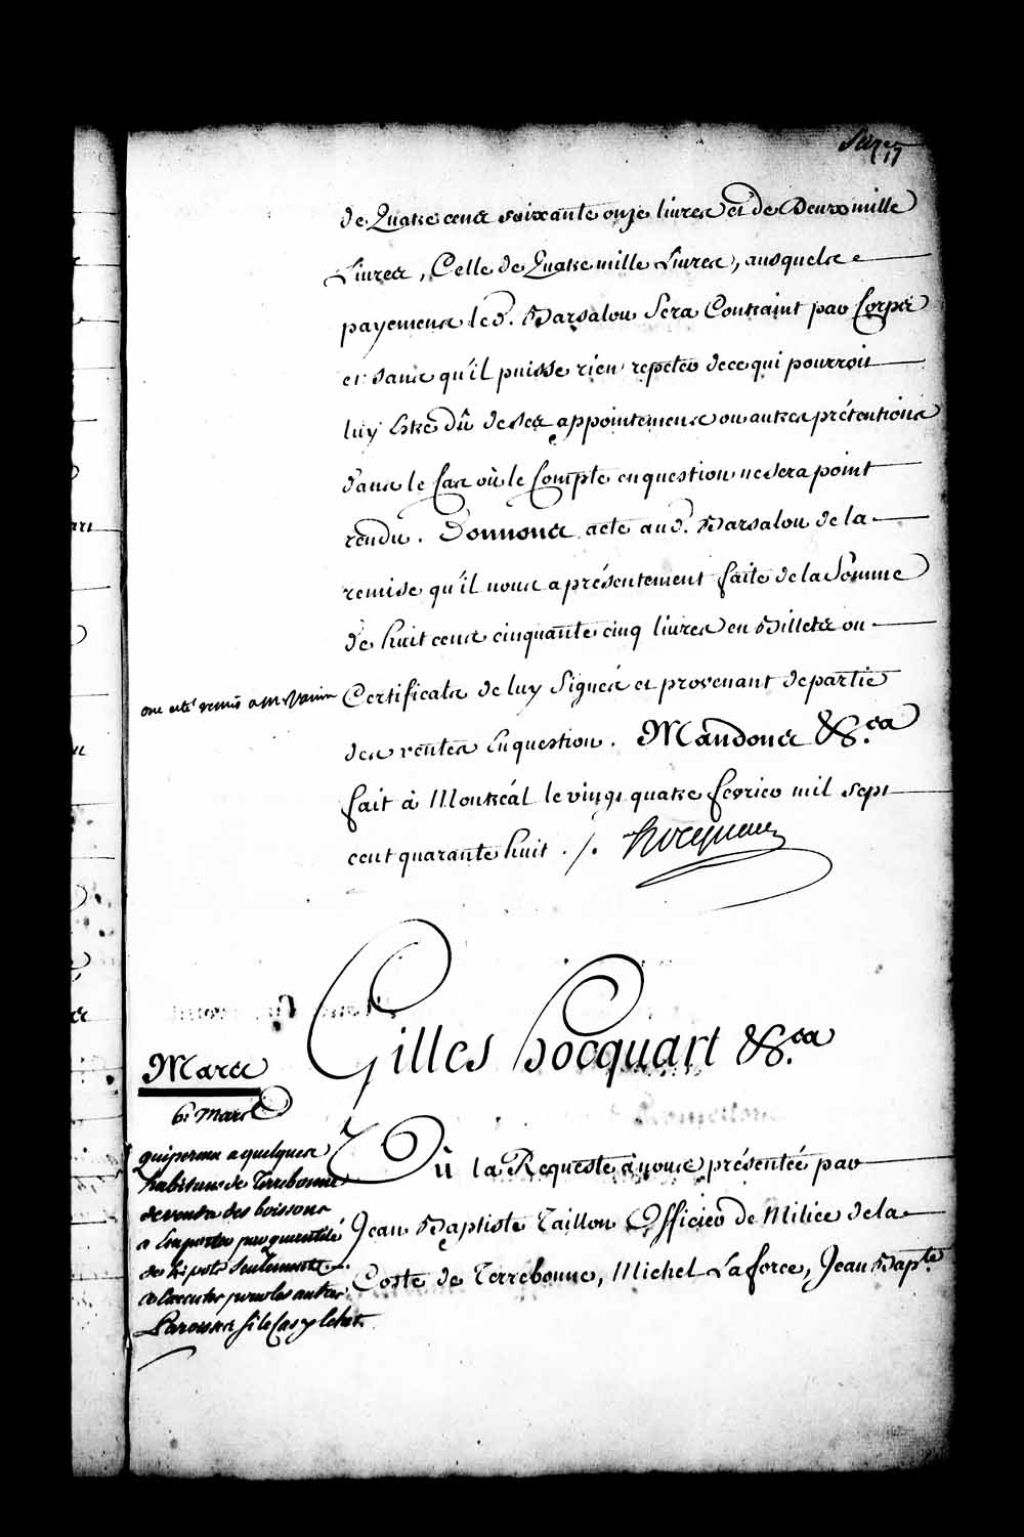 de Quatre cens soixante onze livres et de Deux mille
Livres, Celle de Quatre mille Livres, ausquels
payemens led. Barsalou Sera Contraint par Corps
et sans qu'il puisse rien repeter de ce qui pourroit
luy Estre dû de ses appointemens ou autres prétentions
dans le Cas où le Compte en question ne sera point
rendu. Donnons acte aud. Barsalou de la
remise qu'il nous a présentement faite de la Somme
de huit cens cinquante cinq livres en Billets ou
ont eté remis a Mr Varin
Certificats de luy Signés et provenant de partie
des ventes En question. Mandons &c.a
fait à Montréal le vingt quatre fevrier mil sept
cent quarante huit ./. Hocquart
Gilles Hocquart &c.a
Mars
6. Mars
qui permet a quelques
habitans de Terrebonne
de vendre des boissons
a Emporter par quantité
de pots Seulement
Vû la Requeste à nous présentée par
Jean Baptiste Taillon Officier de Milice de la
Coste de Terrebonne, Michel Laforce, Jean Bap.te